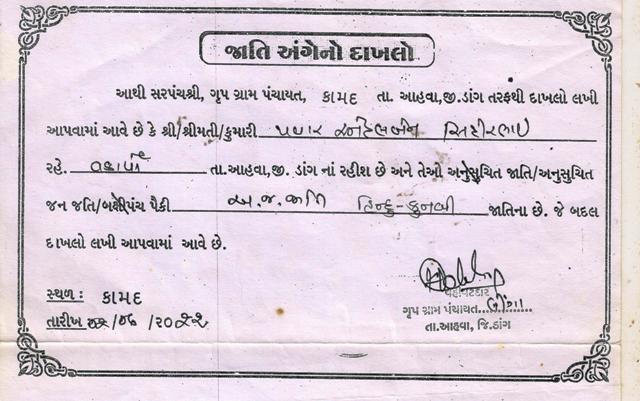 જાતિ અંગેનો દાખલો
આથી સરપંચશ્રી, ગૃપ ગ્રામ પંચાયત, કામદ તા. આહવા,જી.ડાંગ તરફથી દાખલો લખી
આપવામાં આવે છે કે શ્રી/શ્રીમતી/કુમારી પવાર
રહે. તા.આહવા,જી. ડાંગ નાં રહીશ છે અને તેઓ અનુસુચિત જાતિ/અનુસુચિત
જન જતિ/બક્ષીપંચ પૈકી અ.જ.જાતિ હિન્દુ-કુનબી જાતિના છે. જે બદલ
દાખલો લખી આપવામાં આવે છે.
સ્થળ : કામદ
વહીવટદાર
ગૃપ ગ્રામ પંચાયત
તારીખ /૨૦૨૨
તા.આહવા, જિ.ડાંગ